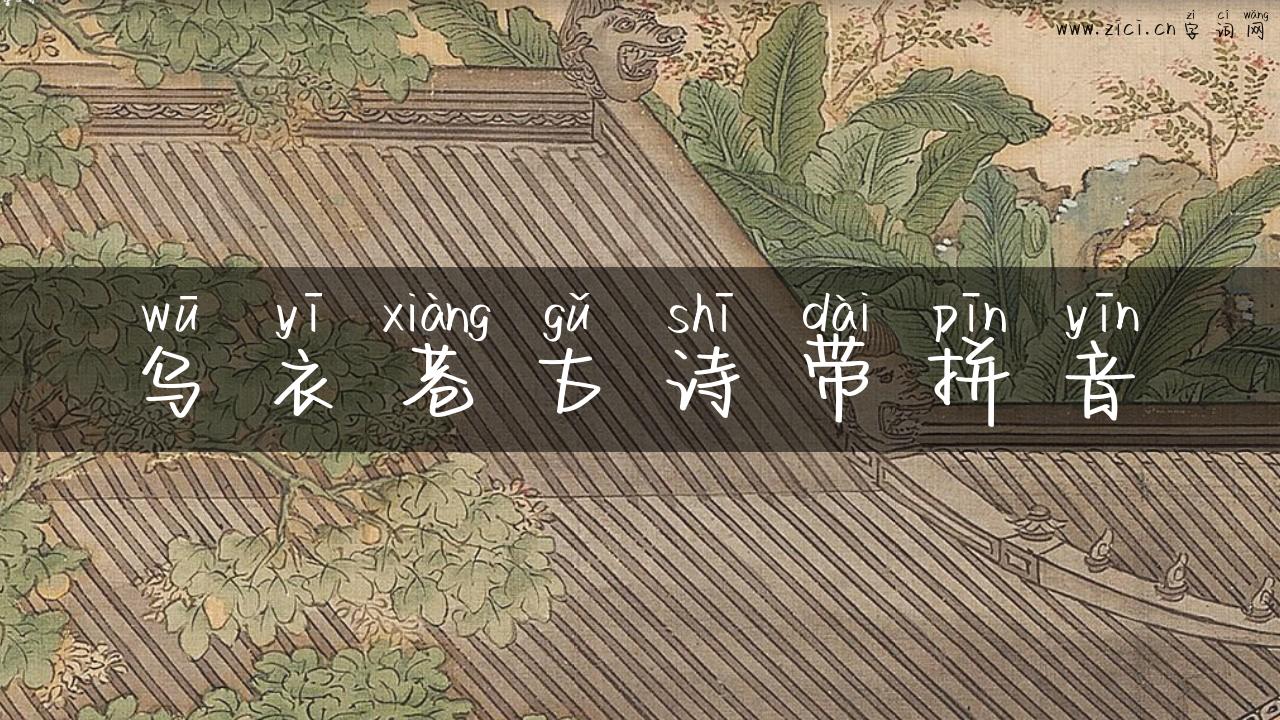 zì cí wǎng
www.zici.cn 字词网
wū yī xiàng gǔ shī dài pīn yīn
乌衣巷古诗带拼音